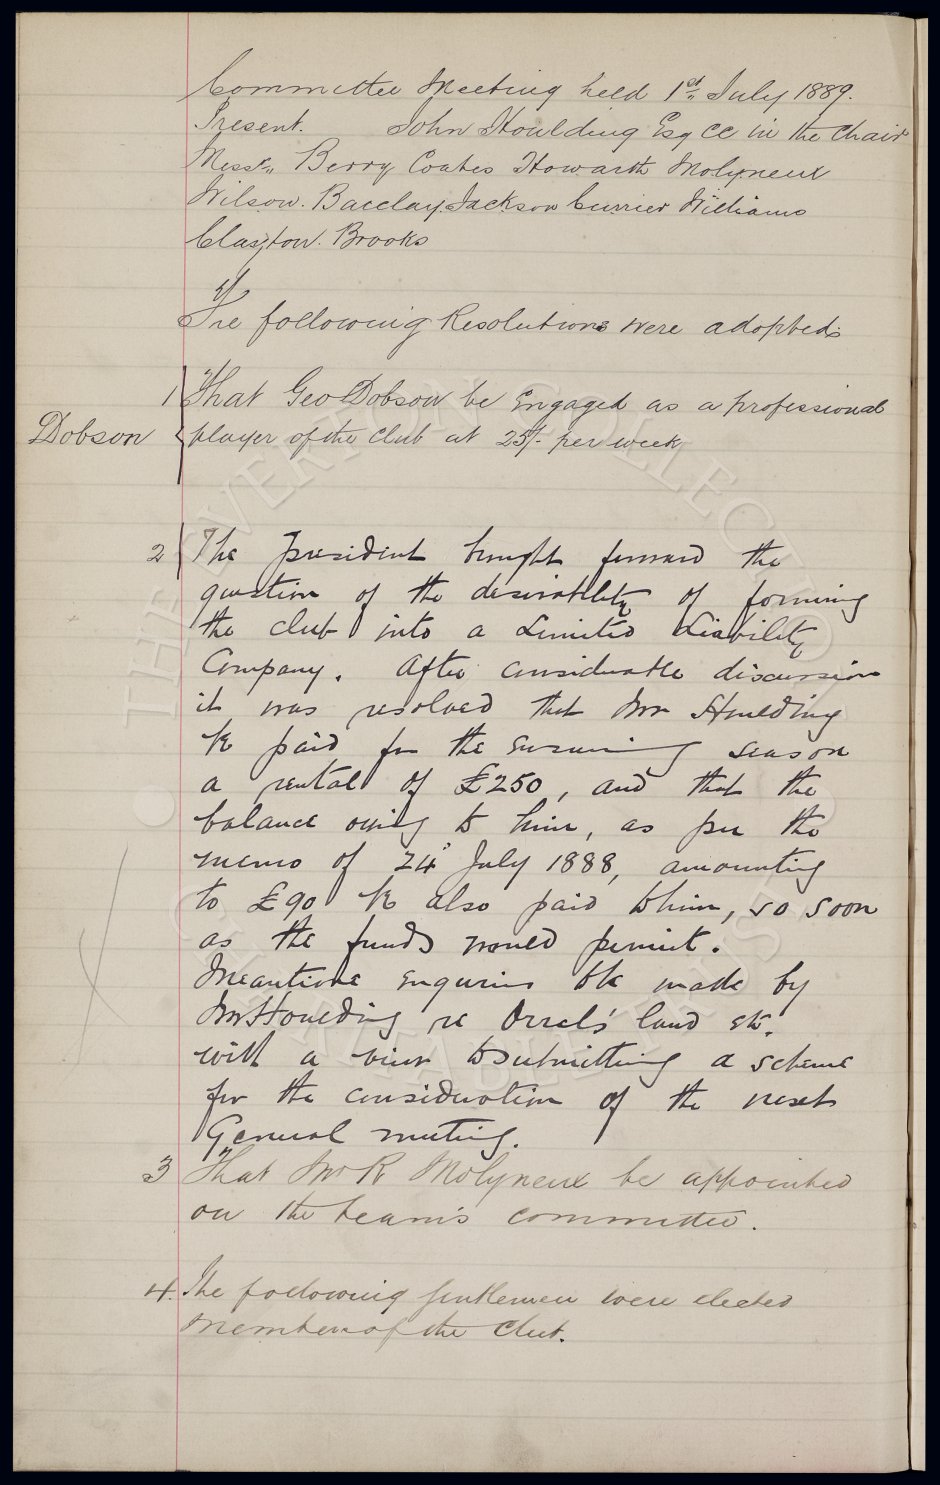 Committee Meeting held 1st July 1889.
Present. John Houlding Esq CC in the Chair
Messrs Berry Coates Howarth Molyneux
Wilson. Barclay. Jackson Currier Williams
Clayton. Brooks
The following Resolutions were adopted:
1 That Geo Dobson be Engaged as a professional
Dobson player of the club at 25/- per week
2 The President brought forward the
question of the desirability of forming
the club into a Limited Liability
Company. After considerable discussion
it was resolved that Mr Houlding
be paid for the ensuing season
a rental of £250, and that the
balance owing to him, as per the
memo of 24 July 1888, amounting
to £90 be also paid to him, so soon
as the funds would permit.
Meantime enquiries to be made by
Mr Houlding re Orrel's land etc.
with a view to submitting a scheme
for the consideration of the next
General meeting.
3 That Mr R Molyneux be appointed
on the team's committee.
4. The following gentlemen were elected
Members of the Club.
THE EVERTON COLLECTION
CHARITABLE TRUST